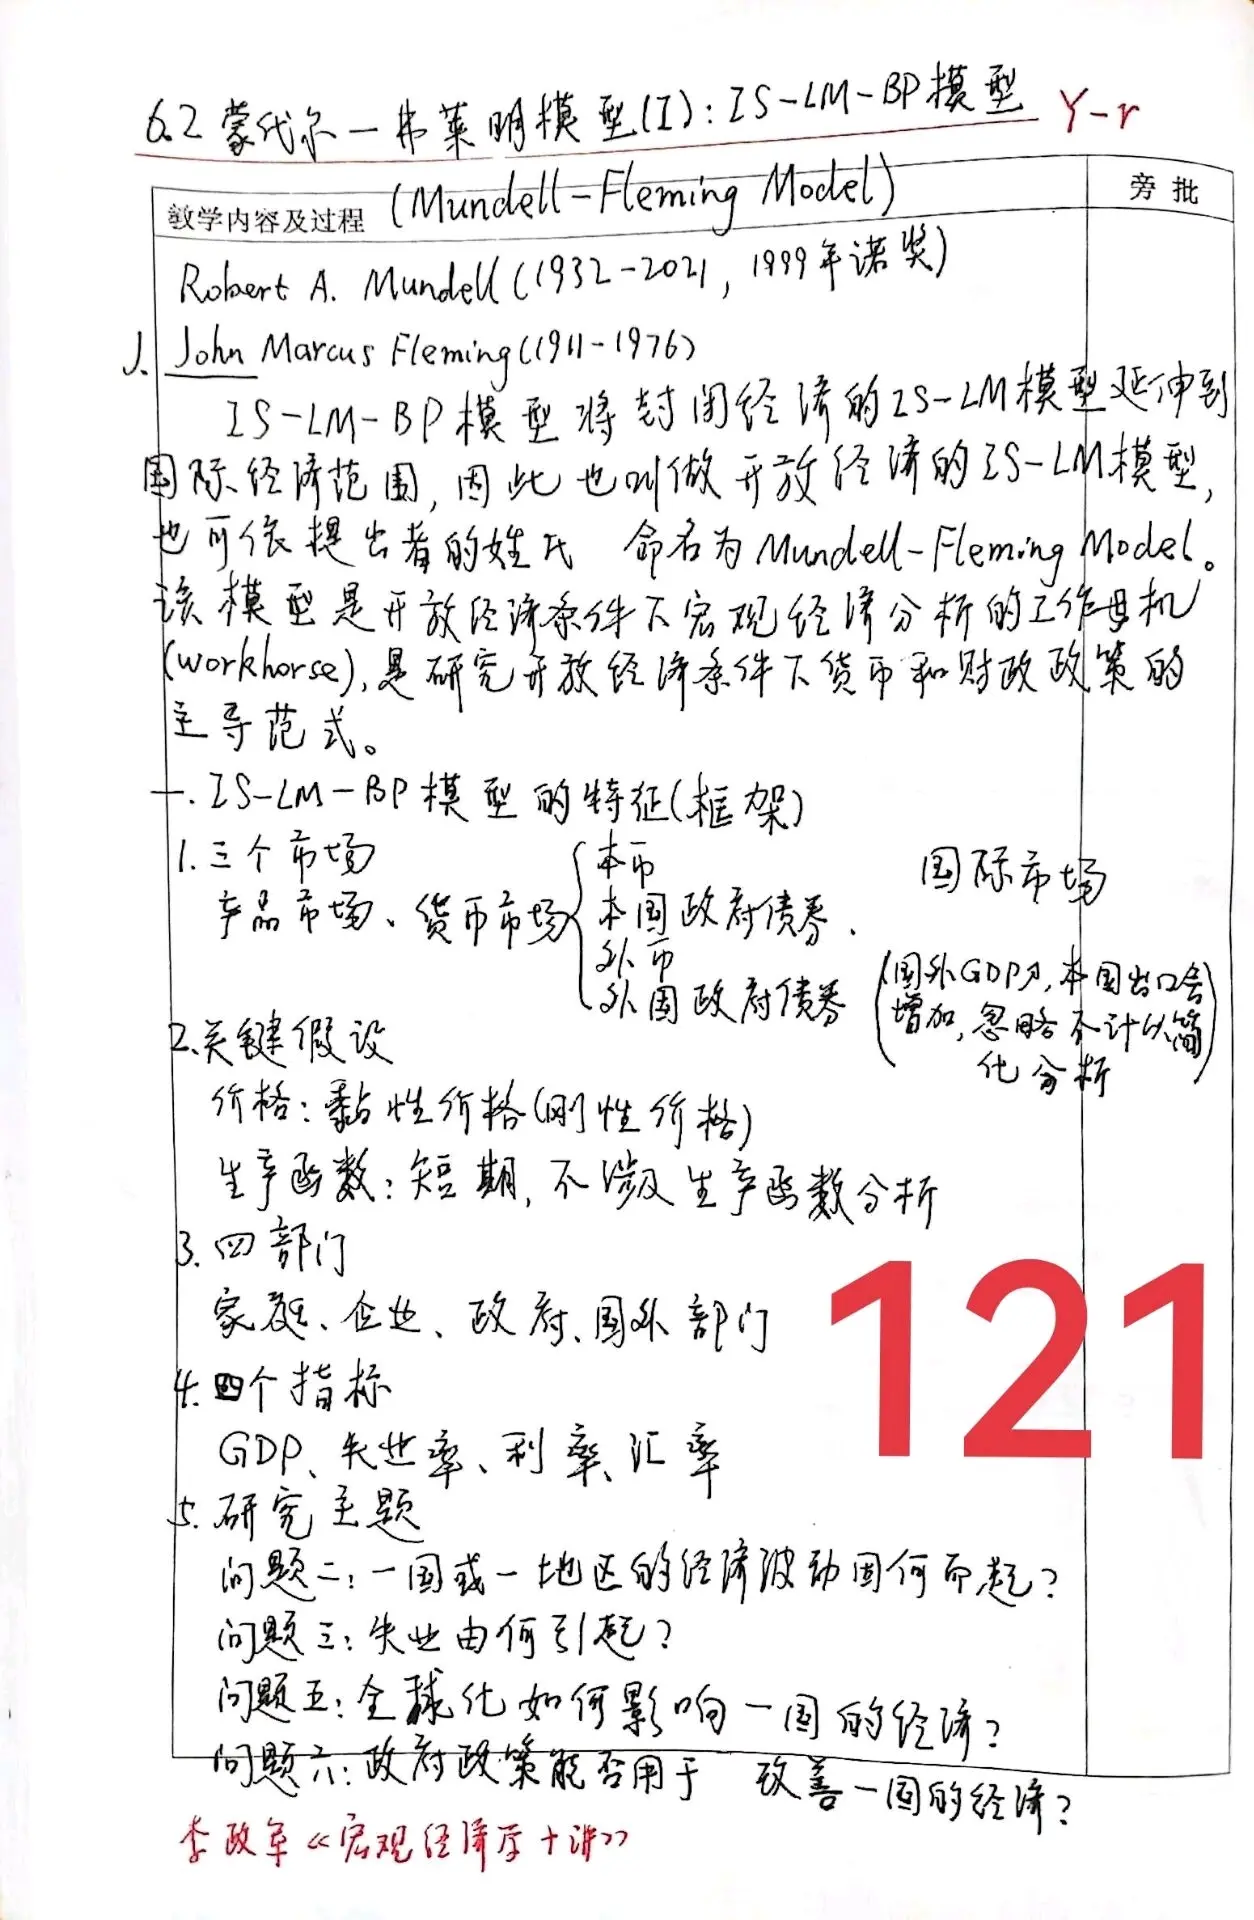 6.2 蒙代尔-弗莱明模型(I): IS-LM-BP模型 Y-r
(Mundell-Fleming Model)
教学内容及过程
旁批
Robert A. Mundell(1932-2021, 1999年诺奖)
J. John Marcus Fleming(1911-1976)
IS-LM-BP模型将封闭经济的IS-LM模型延伸到
国际经济范围,因此也叫做开放经济的IS-LM模型,
也可依提出者的姓氏 命名为Mundell-Fleming Model。
该模型是开放经济条件下宏观经济分析的工作母机
(workhorse),是研究开放经济条件下货币和财政政策的
主导范式。
一.IS-LM-BP模型的特征(框架)
1.三个市场
产品市场、货币市场
本币
本国政府债券、
外币
外国政府债券
国际市场
(国外GDP↑,本国出口会
增加,忽略不计以简
化分析)
2.关键假设
价格:黏性价格(刚性价格)
生产函数:短期,不涉及生产函数分析
3.四部门
家庭、企业、政府、国外部门
4.四个指标
GDP、失业率、利率、汇率
5.研究主题
问题二:一国或一地区的经济波动因何而起?
问题三:失业由何引起?
问题五:全球化如何影响一国的经济?
问题六:政府政策能否用于 改善一国的经济?
李政军《宏观经济学十讲》
121